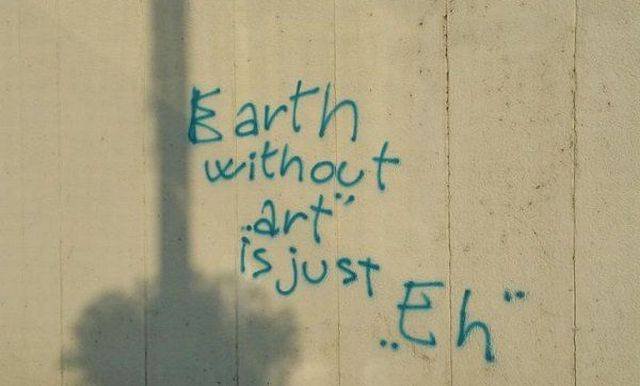 Earth
without
„art“
is just
„Eh“